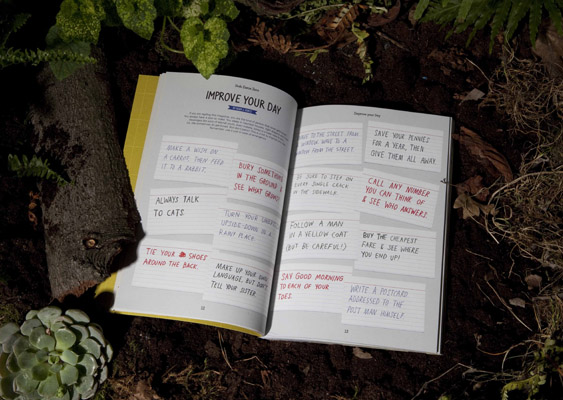 IMPROVE YOUR DAY
MAKE A WISH ON
A CARROT, THEN FEED
IS TO A RABBIT.
BURY SOMETHING
IN THE GROUND &
SEE WHAT GROWS
ALWAYS TALK
TO CATS
TURN YOUR
UPSIDE-DOWN IN A
PLACE
TIE YOUR SHOES
AROUND THE BACK
MAKE UP YOUR OWN
LANGUAGE, BUT DON'T
TELL YOUR SISTER
Improve your Day
TO THE STREET FROM
WINDOW. WAVE TO A
WINDOW FROM THE STREET.
SAVE YOUR PENNIES
FOR A YEAR, THEN
GIVE THEM ALL AWAY
BE SURE TO STEP ON
EVERY SINGLE CRACK
IN THE SIDEWALK
CALL ANY NUMBER
YOU CAN THINK OF
& SEE WHO ANSWERS
FOLLOW A MAN
IN A YELLOW COAT
(BUT BE CAREFUL!)
BUY THE CHEAPEST
FARE & SEE WHERE
YOU END UP!
SAY GOOD MORNING
TO EACH OF YOUR
TOES.
WRITE A POSTCARD
ADDRESSED TO THE
POST MAN HIMSELF.